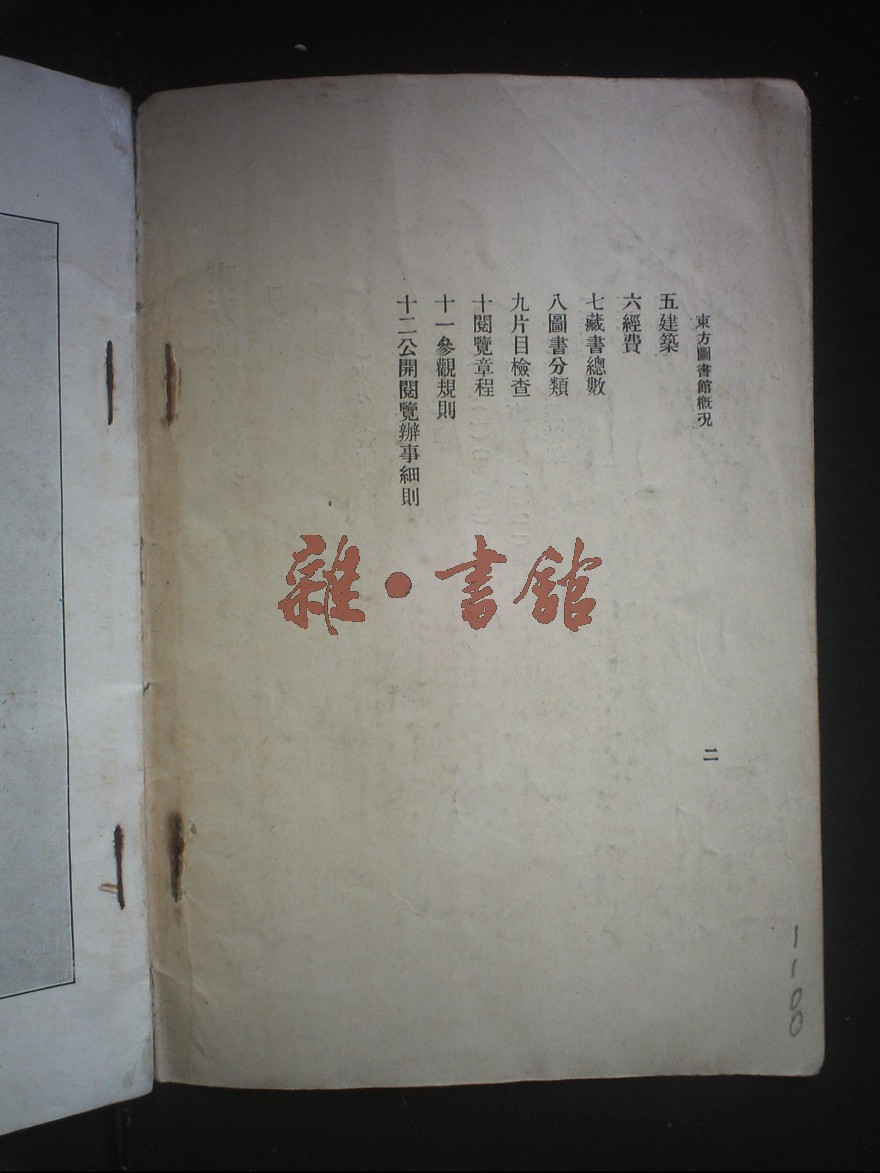 東方圖書館概况
二
五建築
六經費
七藏書總數
八圖書分類
九片目檢查
十閱覽章程
十一參觀規則
十二公開閱覽辦事細則
雜·書館
1100